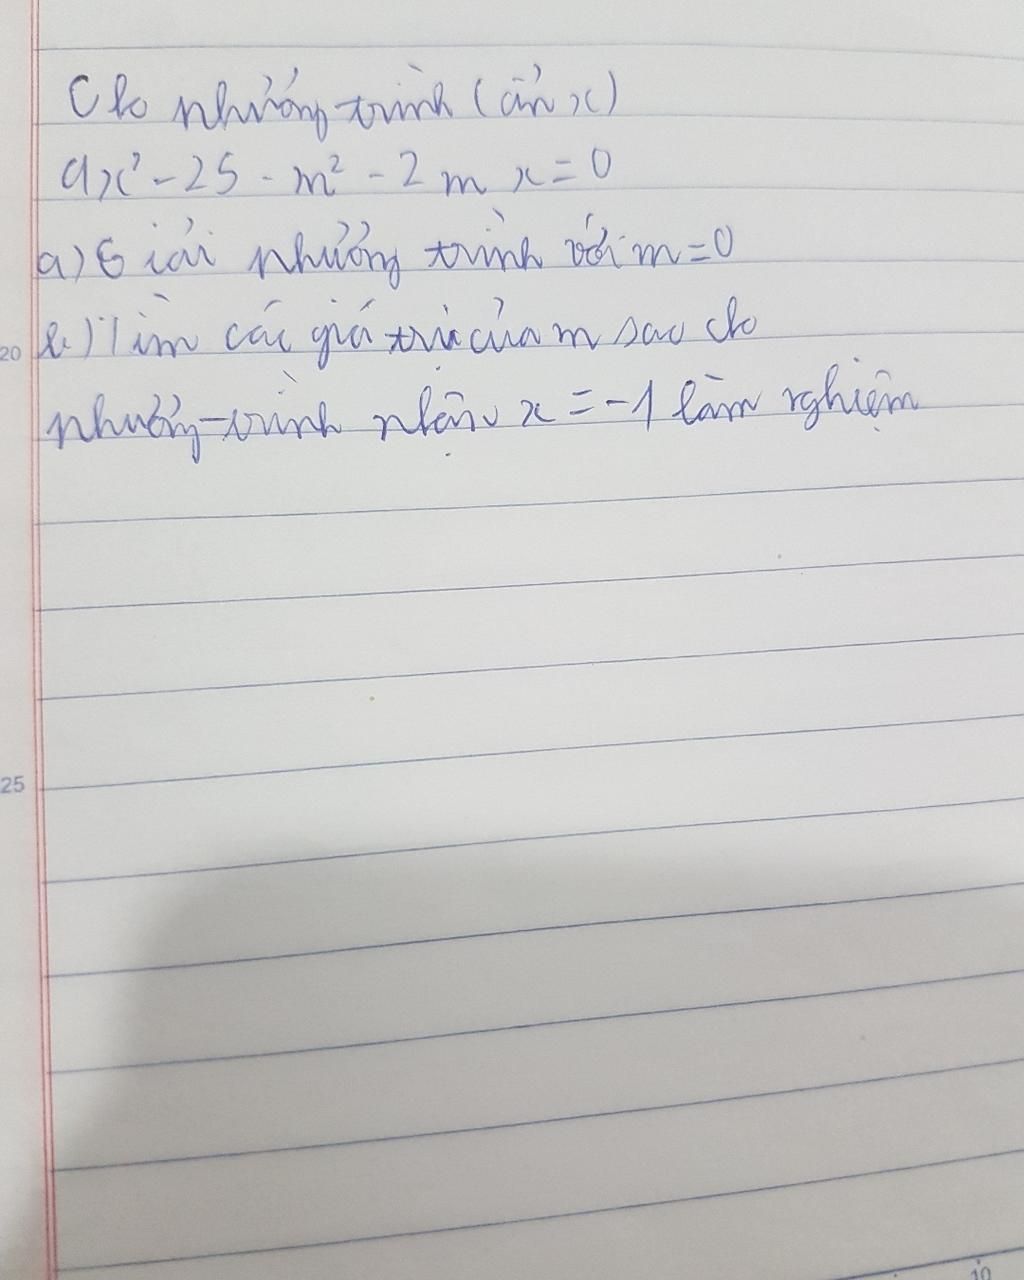 Cho phương trình (ẩn x)
9x² - 25 - m² - 2mx = 0
a) Giải phương trình với m = 0
20 b) Tìm các giá trị của m sao cho
phương trình nhận x = -1 làm nghiệm
25
10